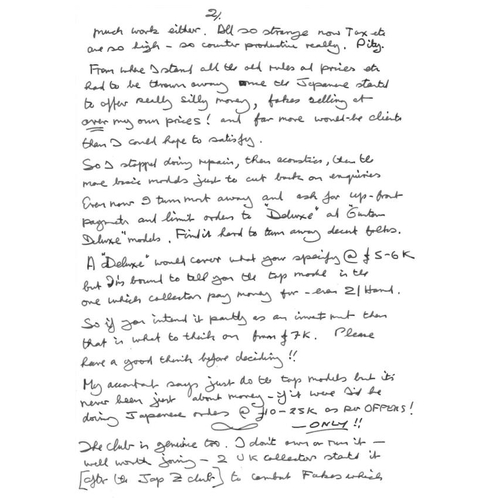 2/.
much work either. All so strange now Tax etc
are so high - so counter productive really. Pity.
From where I stand all the old rules and prices etc
had to be thrown away once the Japanese started
to offer really silly money, fakes selling at
over my own prices! and far more would-be clients
than I could hope to satisfy.
So I stopped doing repairs, then acoustics, then the
more basic models just to cut back on enquiries
Even now I turn most away and ask for up-front
payments and limit orders to "Deluxe" and "Custom
Deluxe" models. Find it hard to turn away decent folks.
A "Deluxe" would cover what you specify @ £5-6K
but I'm bound to tell you the top model is the
one which collectors pay money for - even 2/Hand.
So if you intend it partly as an investment then
that is what to think on from £7K. Please
have a good think before deciding!!
My accountant says just do the top models but its
never been just about money - if it were I'd be
doing Japanese orders @ £10-25K as per OFFERS!
ONLY!!
The club is genuine too. I don't own or run it -
well worth joining - 2 UK collectors started it
[after the Jap Z club] to combat Fakes which